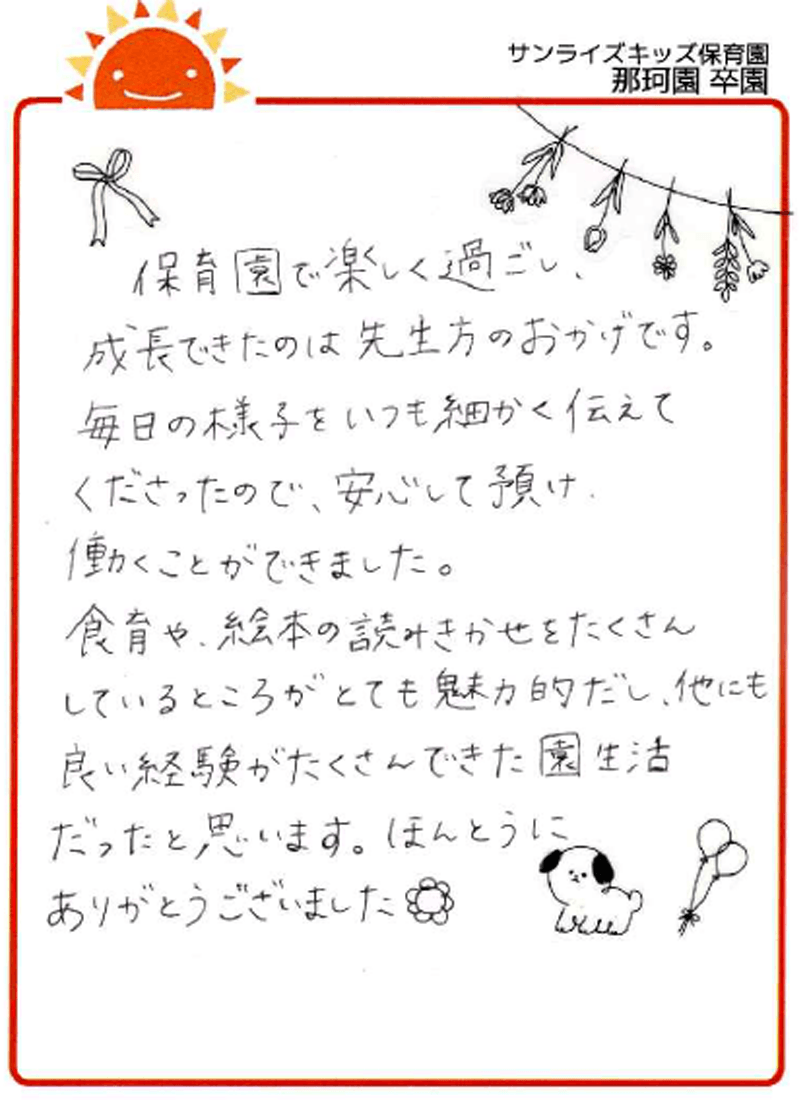 サンライズキッズ保育園
那珂園 卒園
保育園で楽しく過ごし、
成長できたのは先生方のおかげです。
毎日の様子をいつも細かく伝えて
くださったので、安心して預け、
働くことができました。
食育や、絵本の読みきかせをたくさん
しているところがとても魅力的だし、他にも
良い経験がたくさんできた園生活
だったと思います。ほんとうに
ありがとうございました